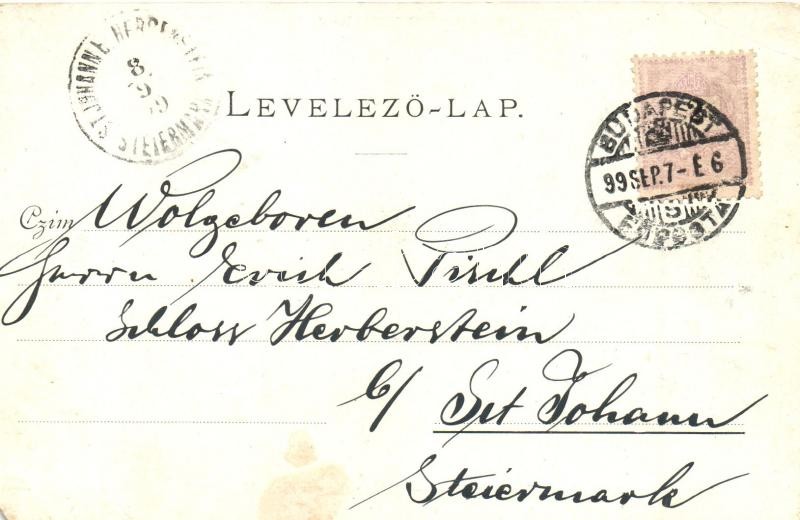 ST. JOHANN B. HERBERSTEIN
8.
9
99
STEIERMARK
LEVELEZŐ-LAP.
BUDAPEST
99 SEP. 7 - E 6
FŐPOSTA
Czim Wolgeboren
Herrn Erich Pischl
Schloss Herberstein
b/ Sct Johann
Steiermark